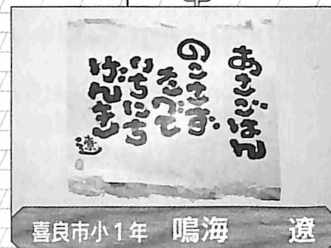 あさごはん
のこさず
たべて
いちにち
げんき
遼
喜良市小1年 鳴海 遼